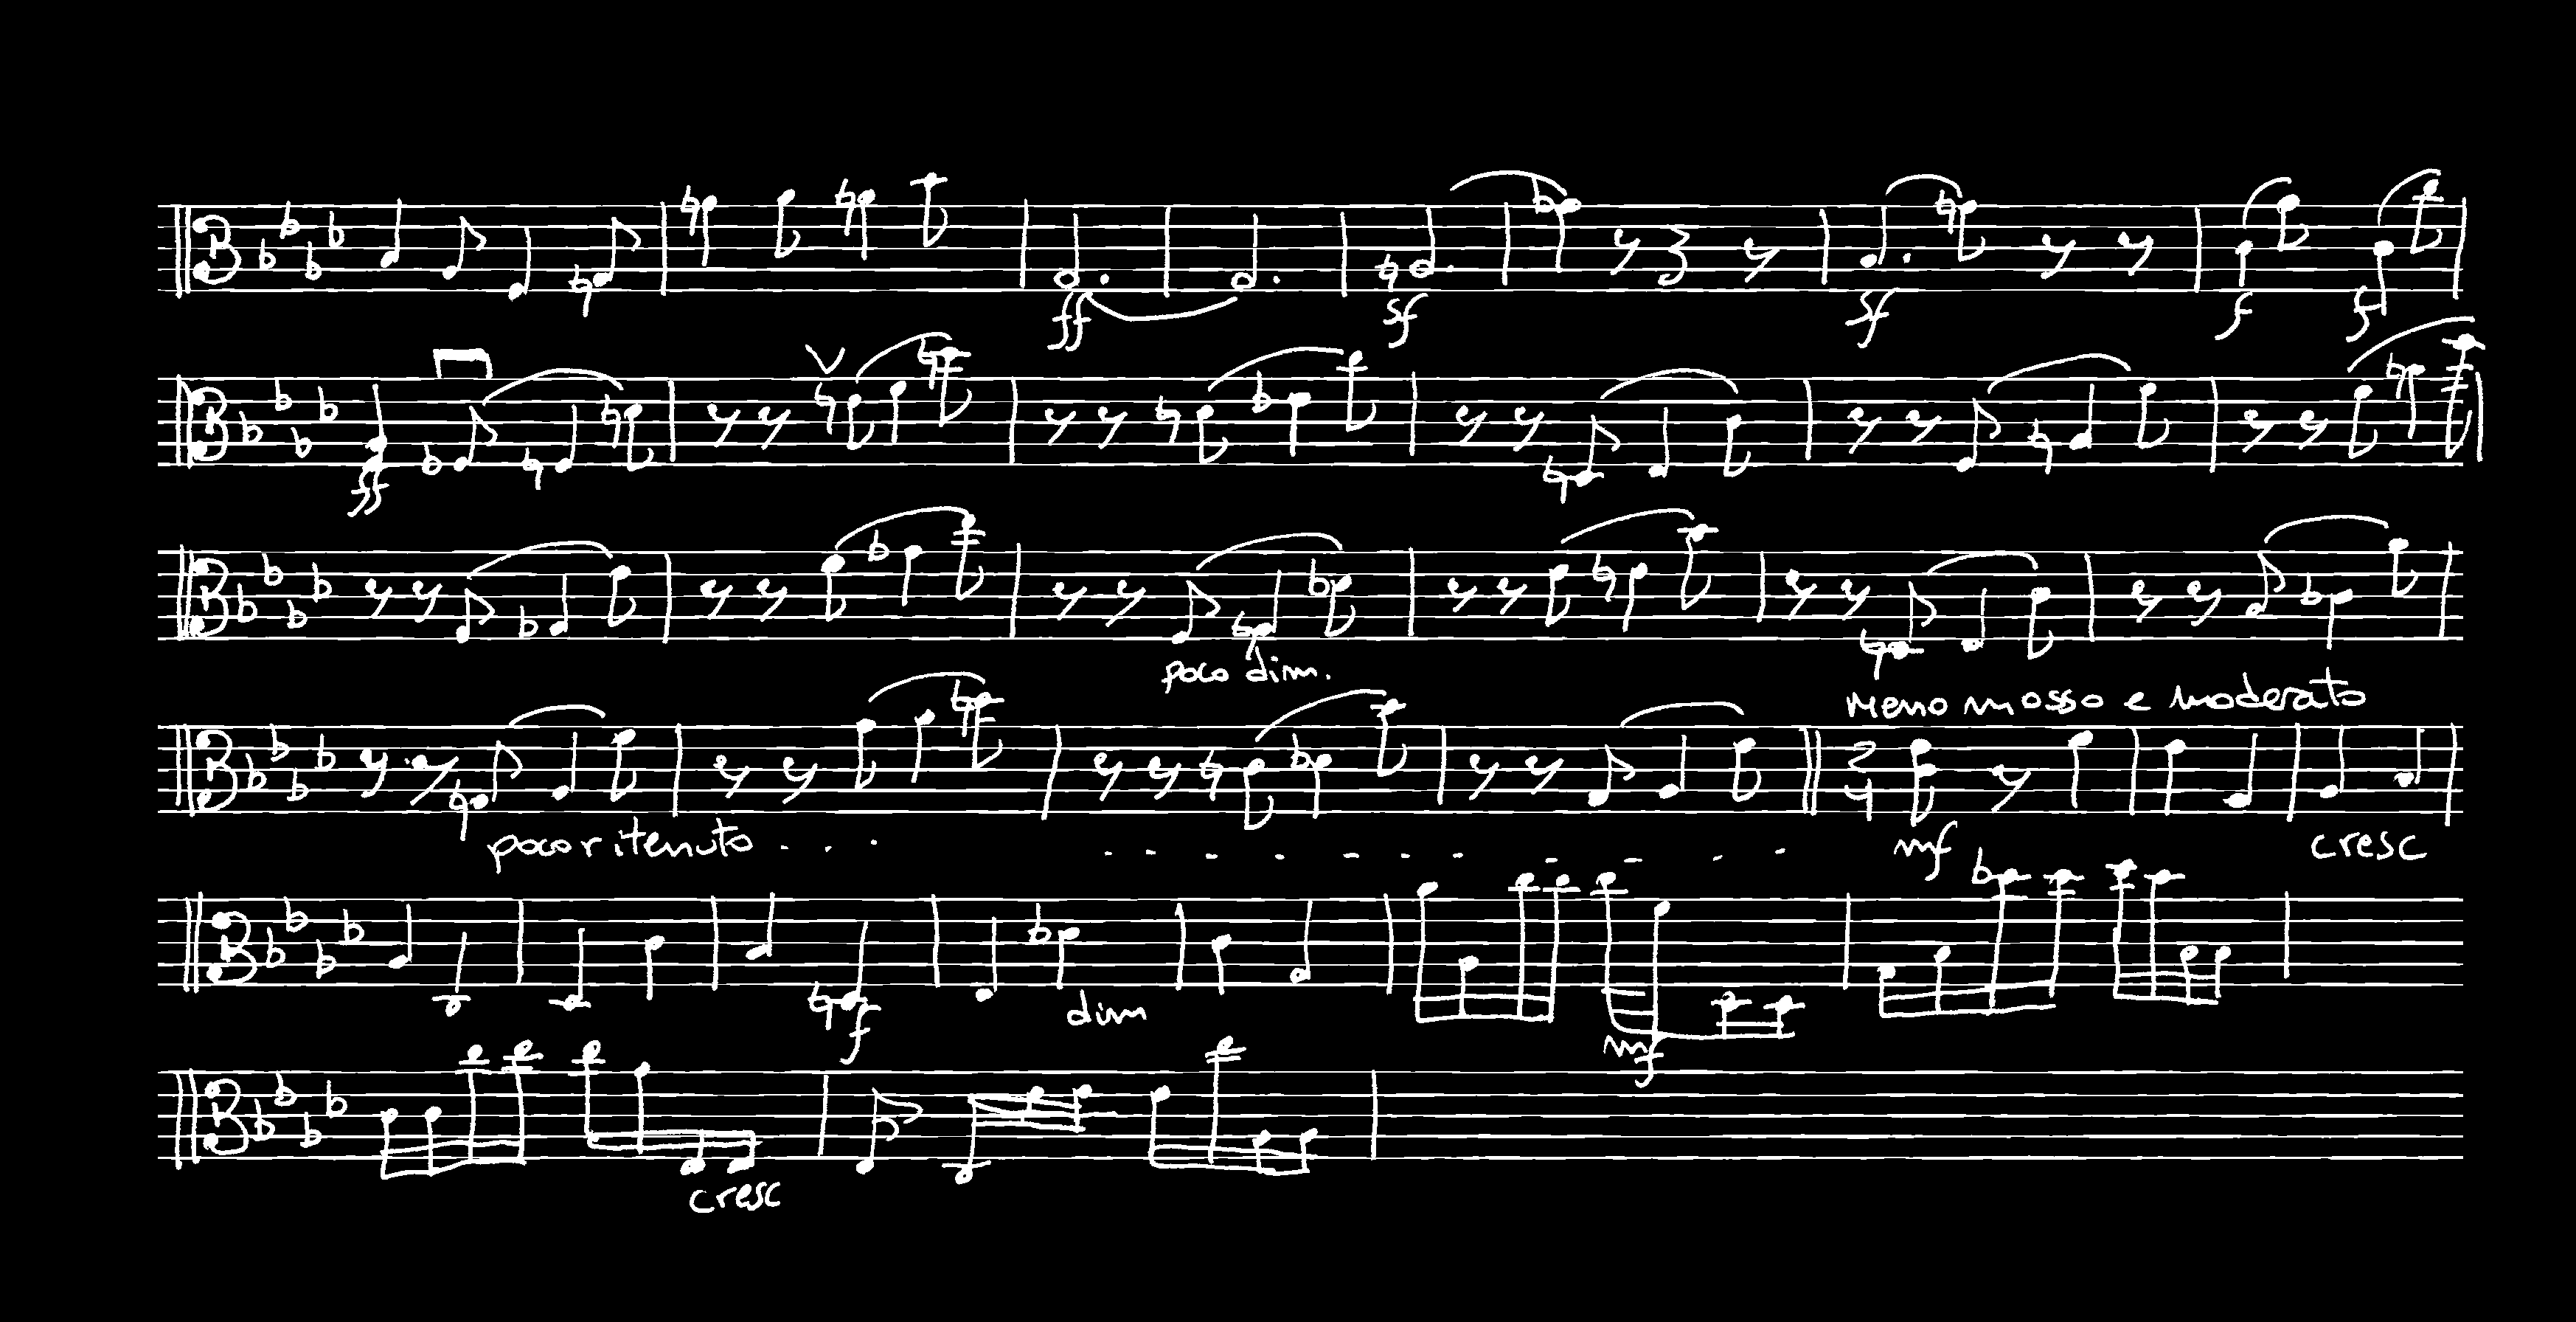 ff sf sf f f
ff
poco dim.
Meno mosso e moderato
2
4
poco ritenuto . . . - - - - - - - - - - mf cresc
f dim mf
cresc